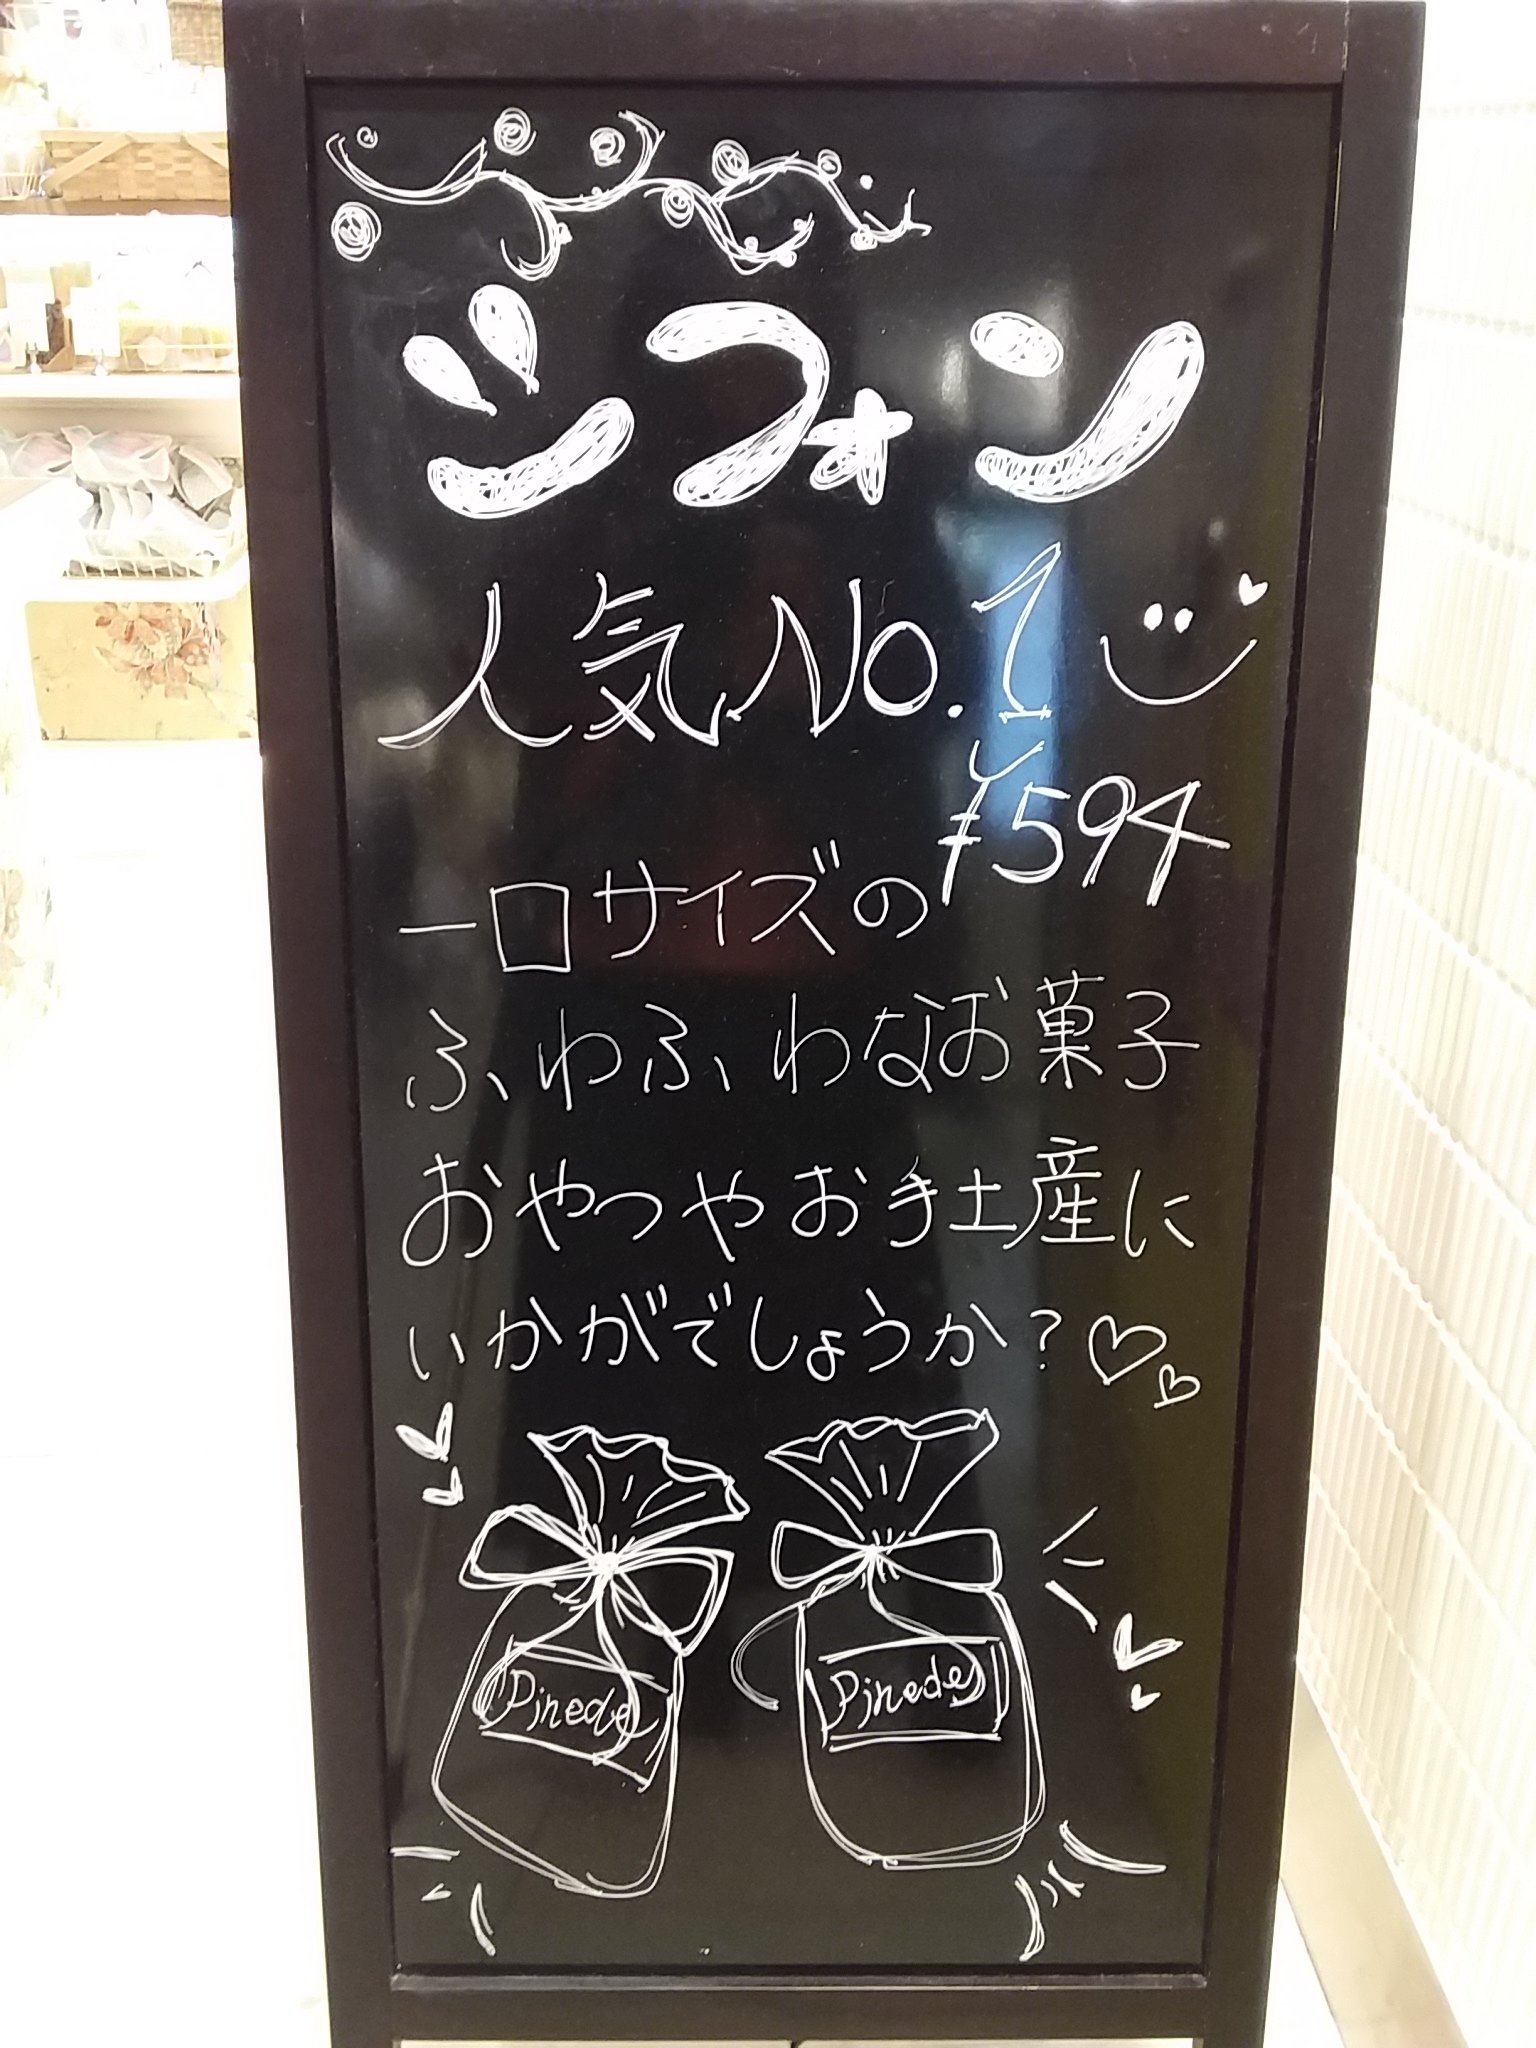 シフォン
人気No.1
¥594
一口サイズの
ふわふわなお菓子
おやつやお手土産に
いかがでしょうか?♡♡
Pinede
Pinede